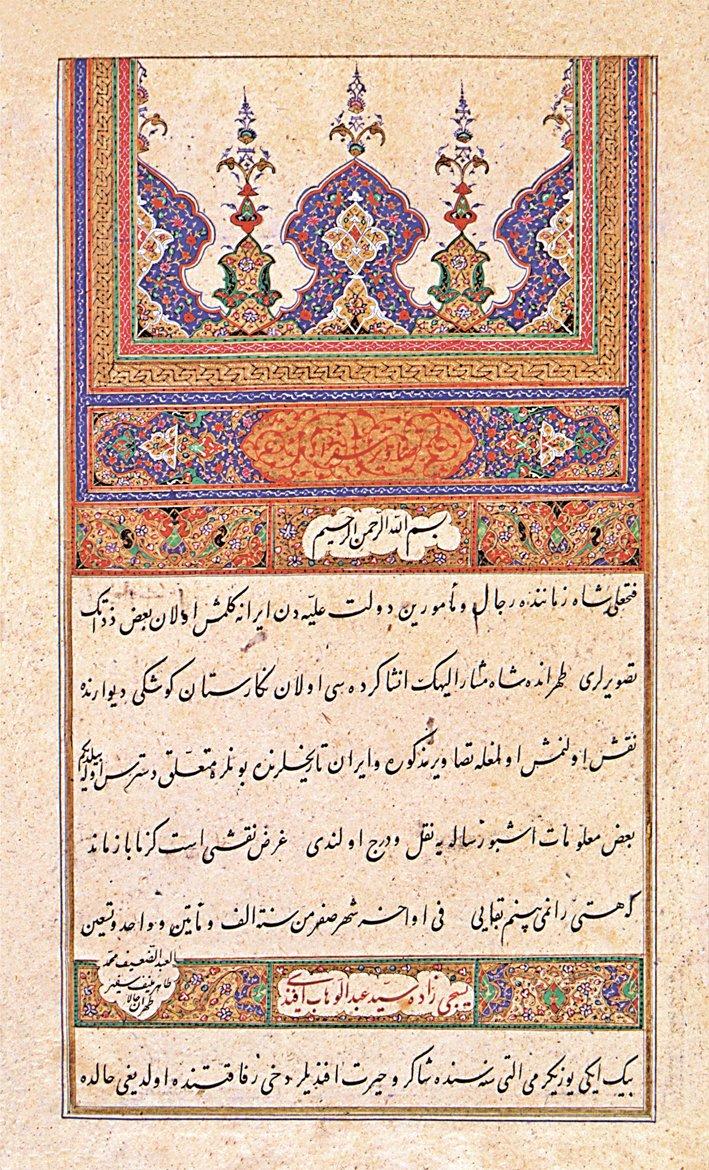 بسم الله الرحمن الرحيم
فتحعلی شاه زماننده رجال و مأمورین دولت علیّه دن ایرانه کلمش اولان بعض ذواتك
تصویرلری طهرانده شاه مشارالیهك انشا کرده سی اولان نکارستان کوشکی دیوارنده
نقش اولنمش اولمغله تصاویر مذکوره و ایران تاریخلرنده بونلره متعلق دسترس اوله بیلدیکم
بعض معلومات اشبو رساله یه نقل و درج اولندی غرض نقشی است کز ما باز ماند
که هستی را نمی بینم بقایی فی اواخر شهر صفر من سنة الف و مأتین و واحد و تسعین
العبد الضعیف محمد
طاهر منیف سفیر
طهران حالا
یسنجی زاده سید عبدالوهاب افندی
بیك ایکی یوز یکرمی التی سنه سنده شاکر و حیرت افندیلر دخی رفاقتنده اولدیغی حالده